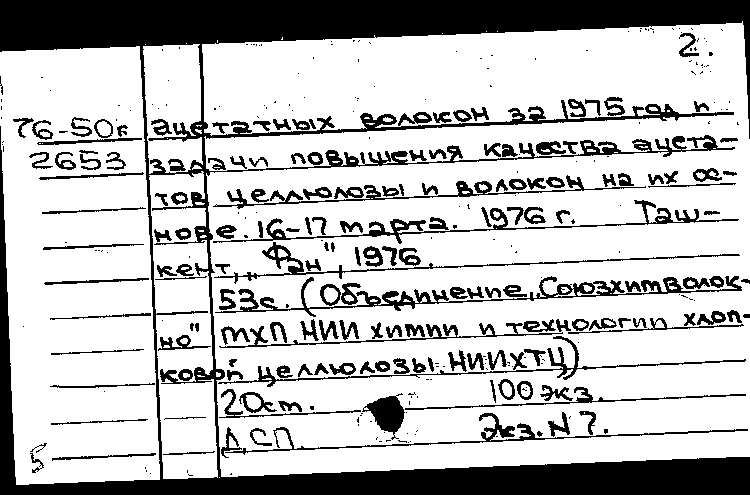 2.
76-50с ацетатных волокон за 1975 год и
2653 задачи повышения качества ацета-
тов целлюлозы и волокон на их ос-
нове. 16-17 марта. 1976 г. Таш-
кент, „Фан", 1976.
53с. (Объединение „Союзхимволок-
но" МХП. НИИ химии и технологии хлоп-
ковой целлюлозы. НИИХТЦ).
20см. 100 экз.
ДСП. Экз. N 7.
5